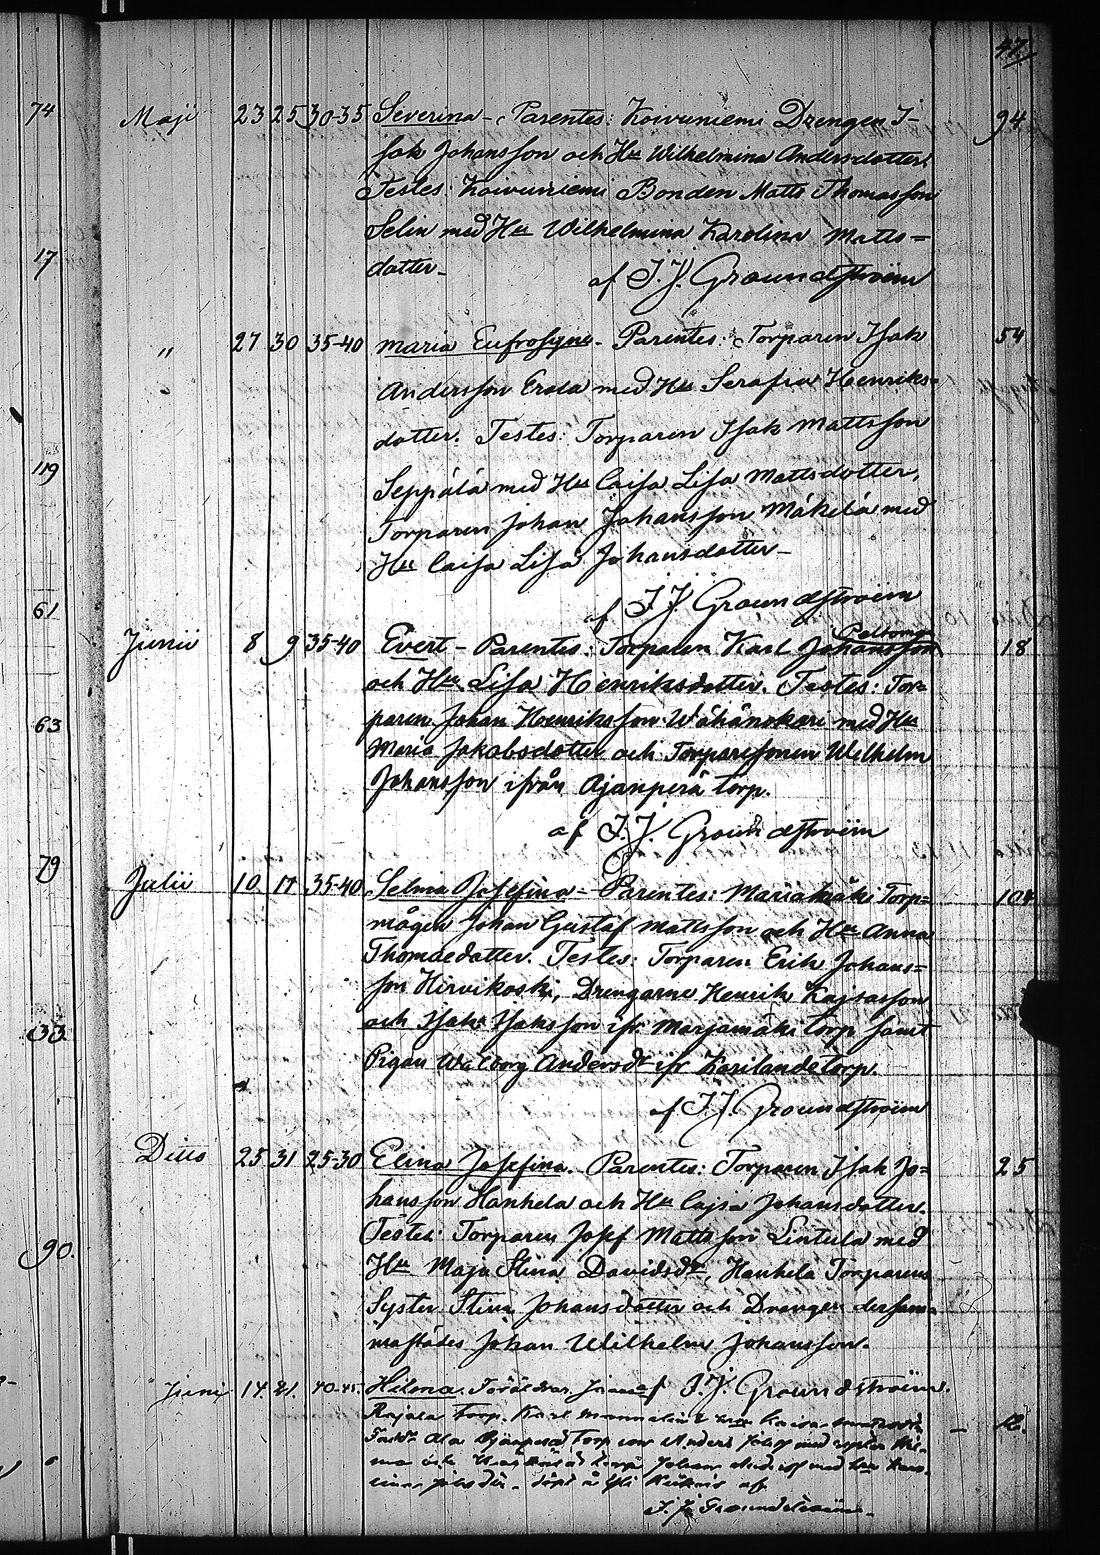 47
74 Maji 23 25 30-35 Severina - Parentes: Koivuniemi Drengen I- 94
sak Johansson och Hu Wilhelmina Andersdotter.
Testes: Koivuniemi Bonden Matts Thomasson
Selin med Hu Wilhelmina Karolina Matts=
17
dotter- af I. J. Groundstroëm
" 27 30 35-40 Maria Eufrosyne - Parentes: Torparen Isak 54
Andersson Erola med Hu Serafia Henriks=
dotter. Testes: Torparen Isak Mattsson
119
Seppälä med Hu Caisa Lisa Mattsdotter,
Torparen Johan Johansson Mäkelä med
Hu Caisa Lisa Johansdotter-
61
af I. J. Groundstroëm
Junii 8 9 35-40 Evert - Parentes: Torparen Karl Johansson 18
och Hu Lisa Henriksdotter. Testes: Tor=
63
paren Johan Henriksson Wähänokari med Hu
Maria Jakobsdotter och Torparesonen Wilhelm
Johansson ifrån Ojanperä torp.
af I. J. Groundstroëm
79
Julii 10 11 35-40 Selma Josefina - Parentes: Mariamäki Torp= 104
mågen Johan Gustaf Mattsson och Hu Anna
Thomaedotter. Testes: Torparen Erik Johans=
son Hirvikoski, Drengarne Henrik Kajsasson
33
och Isak Isaksson ifr Marjamäki torp samt
Pigan Walborg Andersdr ifr Karilande torp.
af I. J. Groundstroëm
Ditto 25 31 25-30 Elina Josefina. Parentes: Torparen Isak Jo= 25
hansson Hankela och Hu Cajsa Johansdotter.
90.
Testes: Torparen Josef Mattsson Lintula med
Hu Maja Stina Davidsdr, Hankela Torparens
Syster Stina Johansdotter och Drengen dersam=
mastädes Johan Wilhelm Johansson.
af I. J. Groundstroëm.
Junij 14. 21. 40-45. Hilma. Föräldrar
Rajala torp. Karl
Torp
Johan
af
I. J. Groundstroëm.